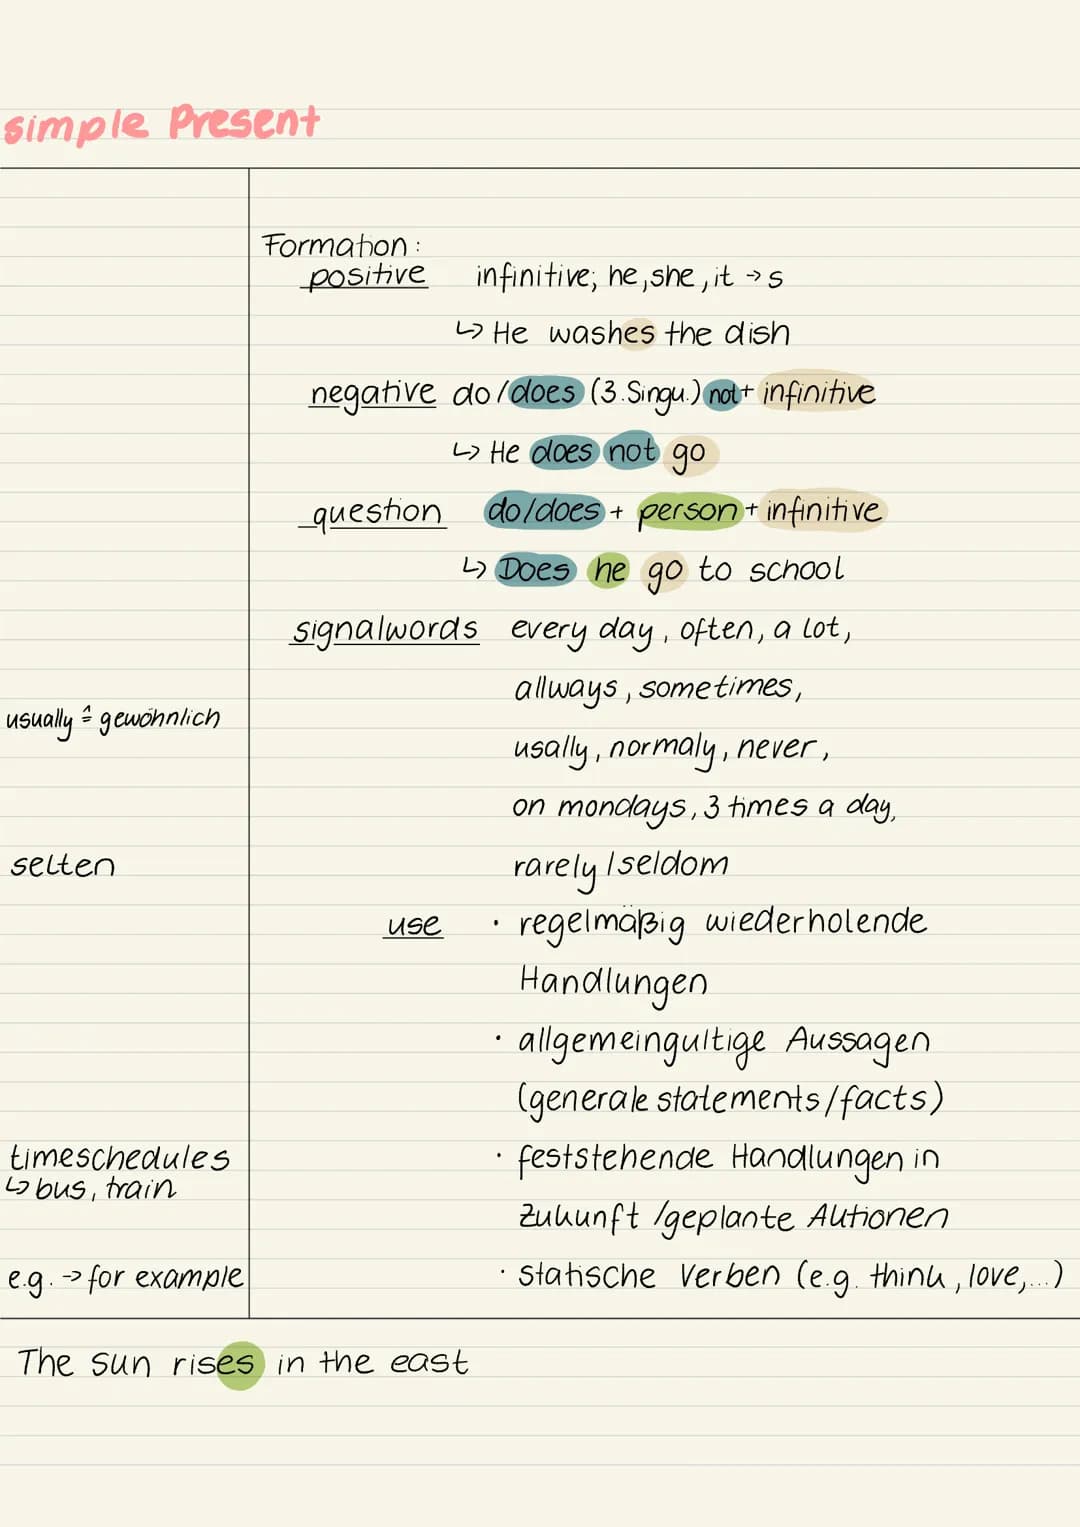 simple Present
Formation:
positive infinitive; he, she, it → s
↳ He washes the dish
negative do/does (3.Singu.) not + infinitive
↳ He does not go
question do/does + person + infinitive
↳ Does he go to school
signalwords every day, often, a lot,
allways, sometimes,
usually ≙ gewöhnlich
usally, normaly, never,
on mondays, 3 times a day,
selten rarely / seldom
use · regelmäßig wiederholende
Handlungen
· allgemeingultige Aussagen
(generale statements/facts)
timeschedules · feststehende Handlungen in
↳ bus, train
Zukunft /geplante Aktionen
e.g. → for example · statische Verben (e.g. think, love,...)
The sun rises in the east